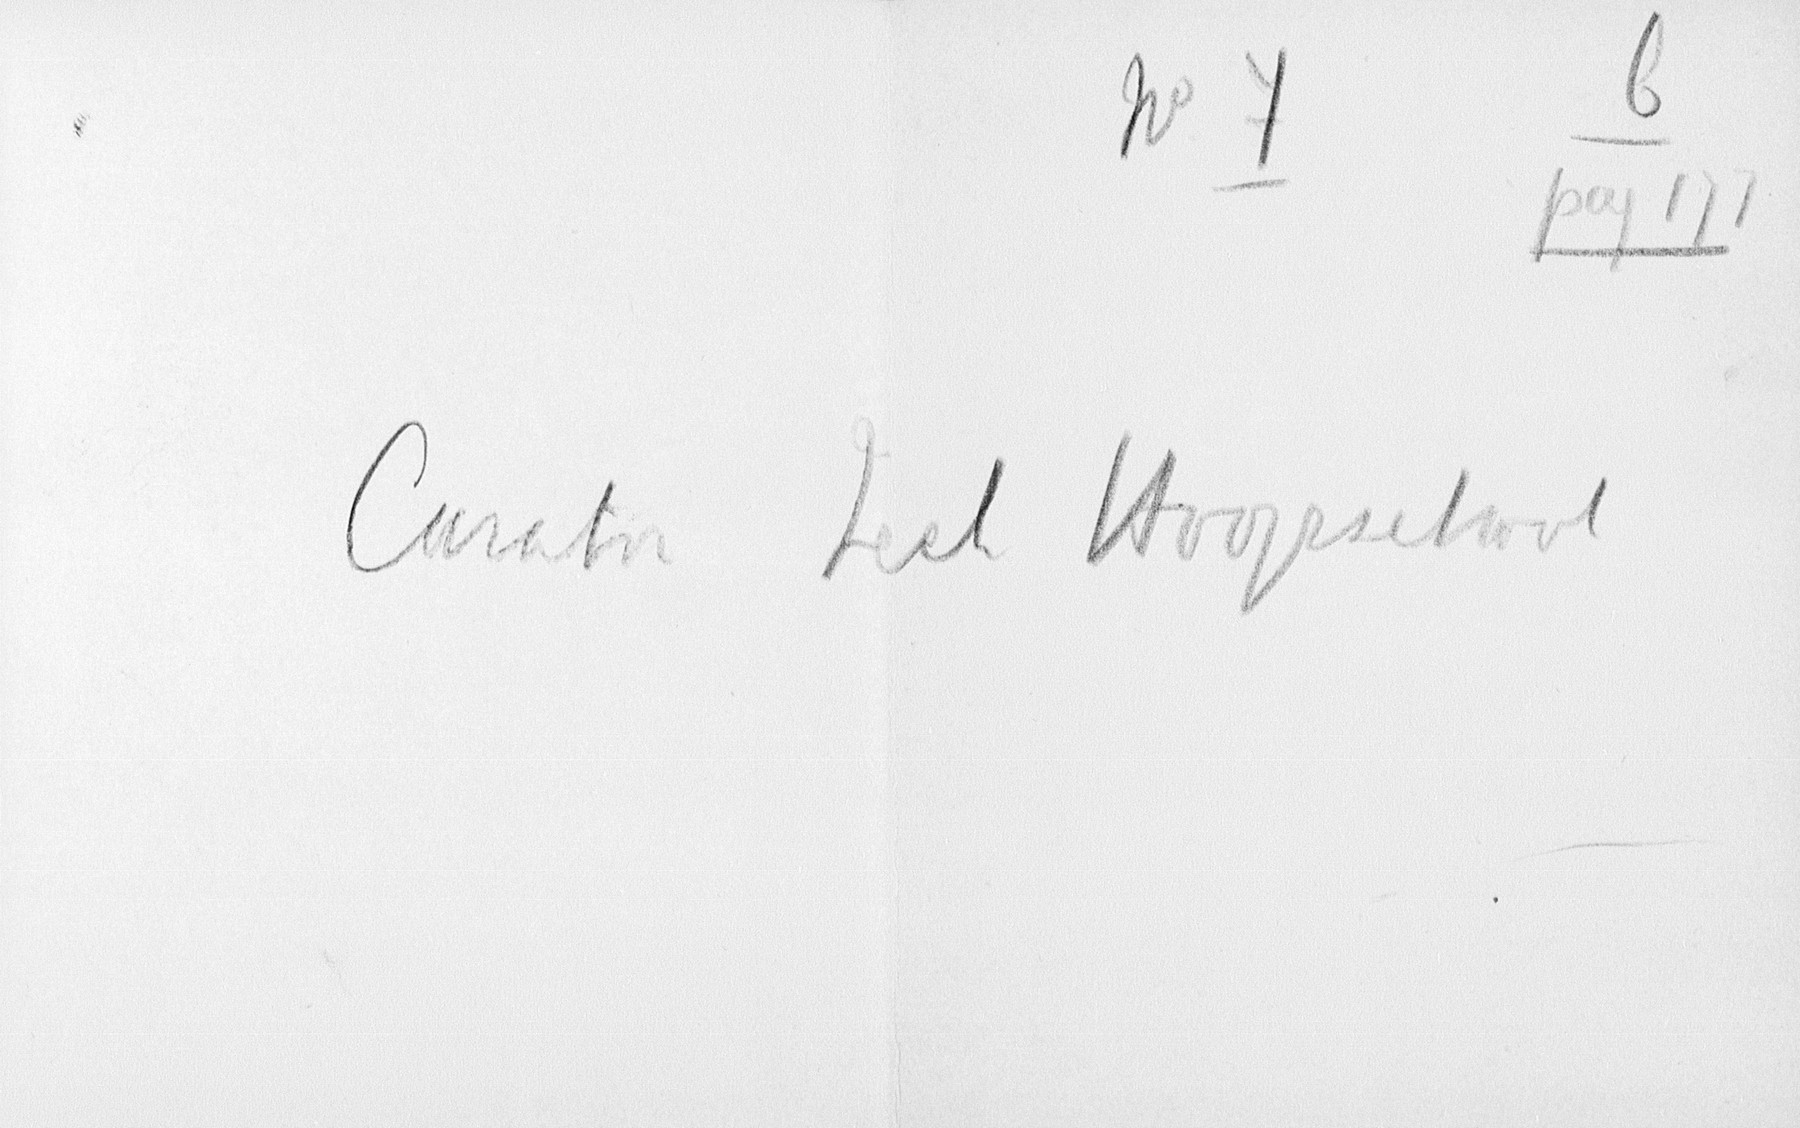 No 7 6
pag 177
Curator Tech Hoogeschool